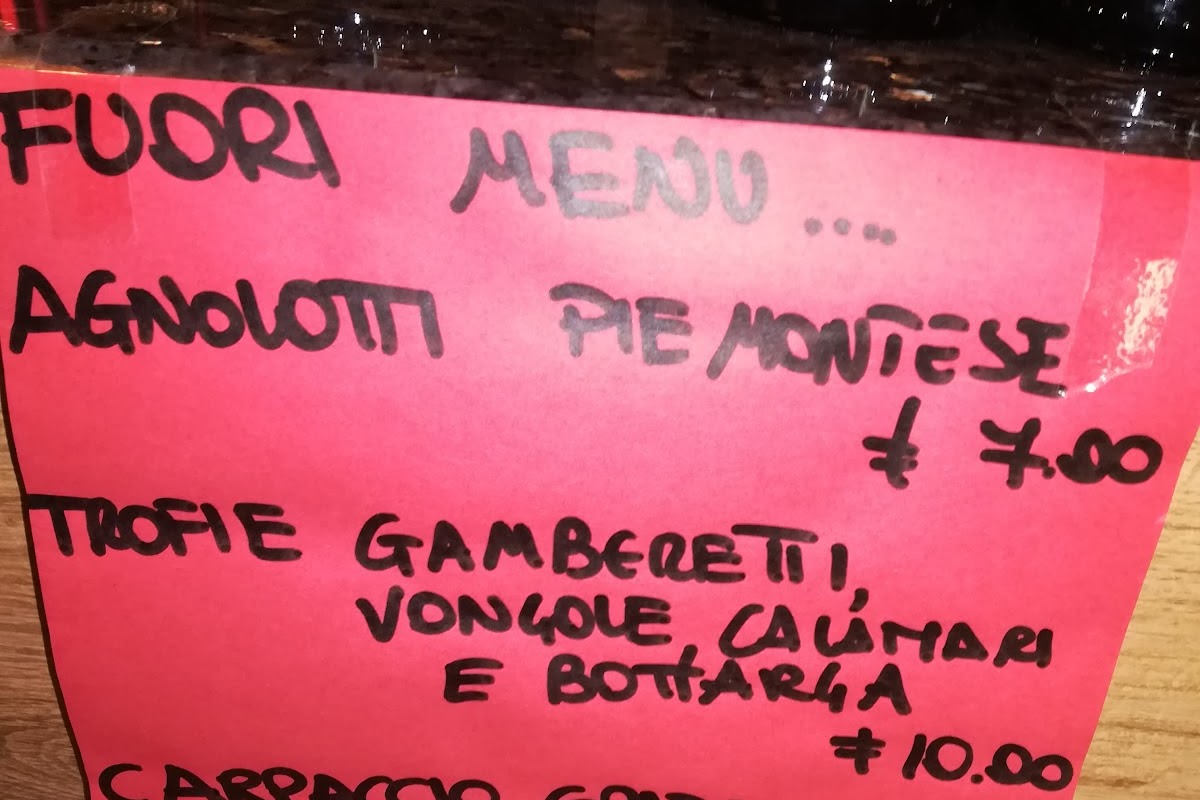 FUORI MENU....
AGNOLOTTI PIEMONTESE
€ 7.00
TROFIE GAMBERETTI,
VONGOLE, CALAMARI
E BOTTARGA
€ 10.00
CARPACCIO